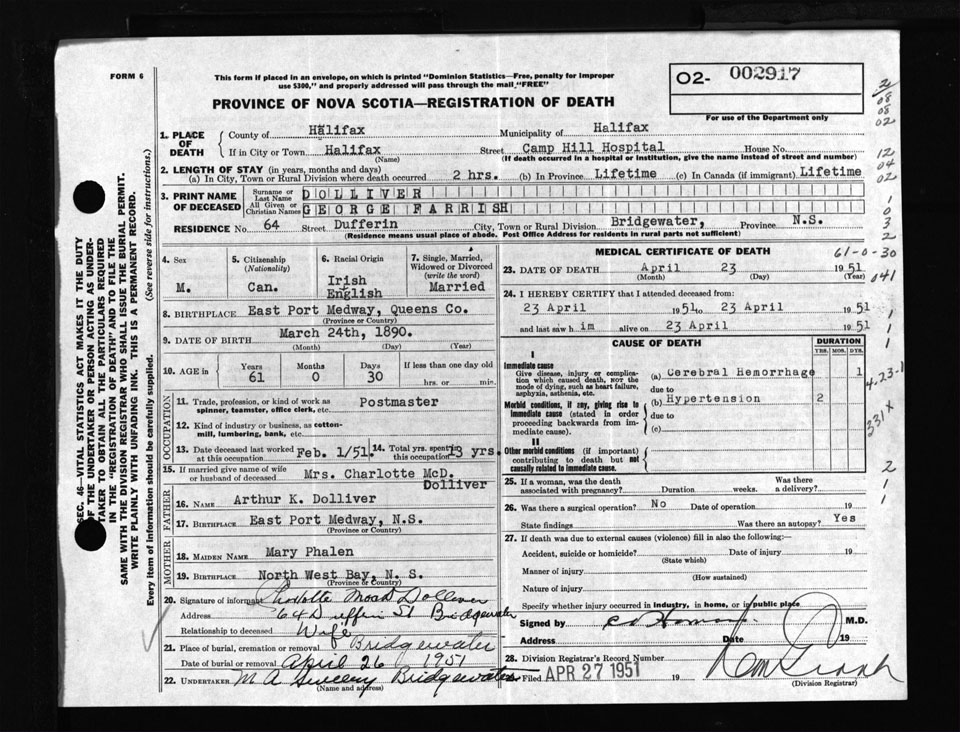 FORM 6
This form if placed in an envelope, on which is printed "Dominion Statistics—Free, penalty for improper
use $300," and properly addressed will pass through the mail "FREE"
O2- 002917
For use of the Department only
PROVINCE OF NOVA SCOTIA—REGISTRATION OF DEATH
1. PLACE OF DEATH
County of Halifax Municipality of Halifax
If in City or Town Halifax Street Camp Hill Hospital House No.
(Name) (If death occurred in a hospital or institution, give the name instead of street and number)
2. LENGTH OF STAY (in years, months and days)
(a) In City, Town or Rural Division where death occurred 2 hrs. (b) In Province Lifetime (c) In Canada (if immigrant) Lifetime
3. PRINT NAME OF DECEASED
Surname or Last Name DOLLIVER
All Given or Christian Names GEORGE FARRISH
RESIDENCE No. 64 Street Dufferin City, Town or Rural Division Bridgewater, Province N.S.
(Residence means usual place of abode. Post Office Address for residents in rural parts not sufficient)
4. Sex M.
5. Citizenship (Nationality) Can.
6. Racial Origin Irish English
7. Single, Married, Widowed or Divorced (write the word) Married
8. BIRTHPLACE East Port Medway, Queens Co.
(Province or Country)
9. DATE OF BIRTH March 24th, 1890.
(Month) (Day) (Year)
10. AGE in Years 61 Months 0 Days 30 If less than one day old hrs. or min.
OCCUPATION
11. Trade, profession, or kind of work as spinner, teamster, office clerk, etc. Postmaster
12. Kind of industry or business, as cotton-mill, lumbering, bank, etc.
13. Date deceased last worked at this occupation Feb. 1/51. 14. Total yrs. spent in this occupation 13 yrs.
15. If married give name of wife or husband of deceased Mrs. Charlotte McD. Dolliver
FATHER
16. NAME Arthur K. Dolliver
17. BIRTHPLACE East Port Medway, N.S.
(Province or Country)
MOTHER
18. MAIDEN NAME Mary Phalen
19. BIRTHPLACE North West Bay, N. S.
(Province or Country)
20. Signature of informant Dolliver
Address 64 Dufferin St Bridgewater
Relationship to deceased Wife
21. Place of burial, cremation or removal Bridgewater
Date of burial or removal April 26 1951
22. UNDERTAKER M A Sweeny Bridgewater
(Name and address)
MEDICAL CERTIFICATE OF DEATH
61-0-30
23. DATE OF DEATH April 23 1951
(Month) (Day) (Year)
041
24. I HEREBY CERTIFY that I attended deceased from:
23 April 1951 to 23 April 1951
and last saw h im alive on 23 April 1951
CAUSE OF DEATH DURATION
YRS. MOS. DYS.
I
Immediate cause
Give disease, injury or complication which caused death, NOT the mode of dying, such as heart failure, asphyxia, asthenia, etc.
(a) Cerebral Hemorrhage 1
due to
Morbid conditions, if any, giving rise to immediate cause (stated in order proceeding backwards from immediate cause).
(b) Hypertension 2
due to
(c)
II
Other morbid conditions (if important) contributing to death but not causally related to immediate cause.
4-23-1
331x
25. If a woman, was the death associated with pregnancy? Duration weeks. Was there a delivery?
26. Was there a surgical operation? No Date of operation 19
State findings Was there an autopsy? Yes
27. If death was due to external causes (violence) fill in also the following:—
Accident, suicide or homicide? Date of injury 19
(State which)
Manner of injury
(How sustained)
Nature of injury
Specify whether injury occurred in industry, in home, or in public place
Signed by M.D.
Address Date 19
28. Division Registrar's Record Number
Filed APR 27 1951 19
(Division Registrar)
SEC. 46—VITAL STATISTICS ACT MAKES IT THE DUTY
OF THE UNDERTAKER OR PERSON ACTING AS UNDER-
TAKER TO OBTAIN ALL THE PARTICULARS REQUIRED
IN THE "REGISTRATION OF DEATH" AND TO FILE THE
SAME WITH THE DIVISION REGISTRAR WHO SHALL ISSUE THE BURIAL PERMIT.
WRITE PLAINLY WITH UNFADING INK. THIS IS A PERMANENT RECORD.
Every item of information should be carefully supplied. (See reverse side for instructions.)